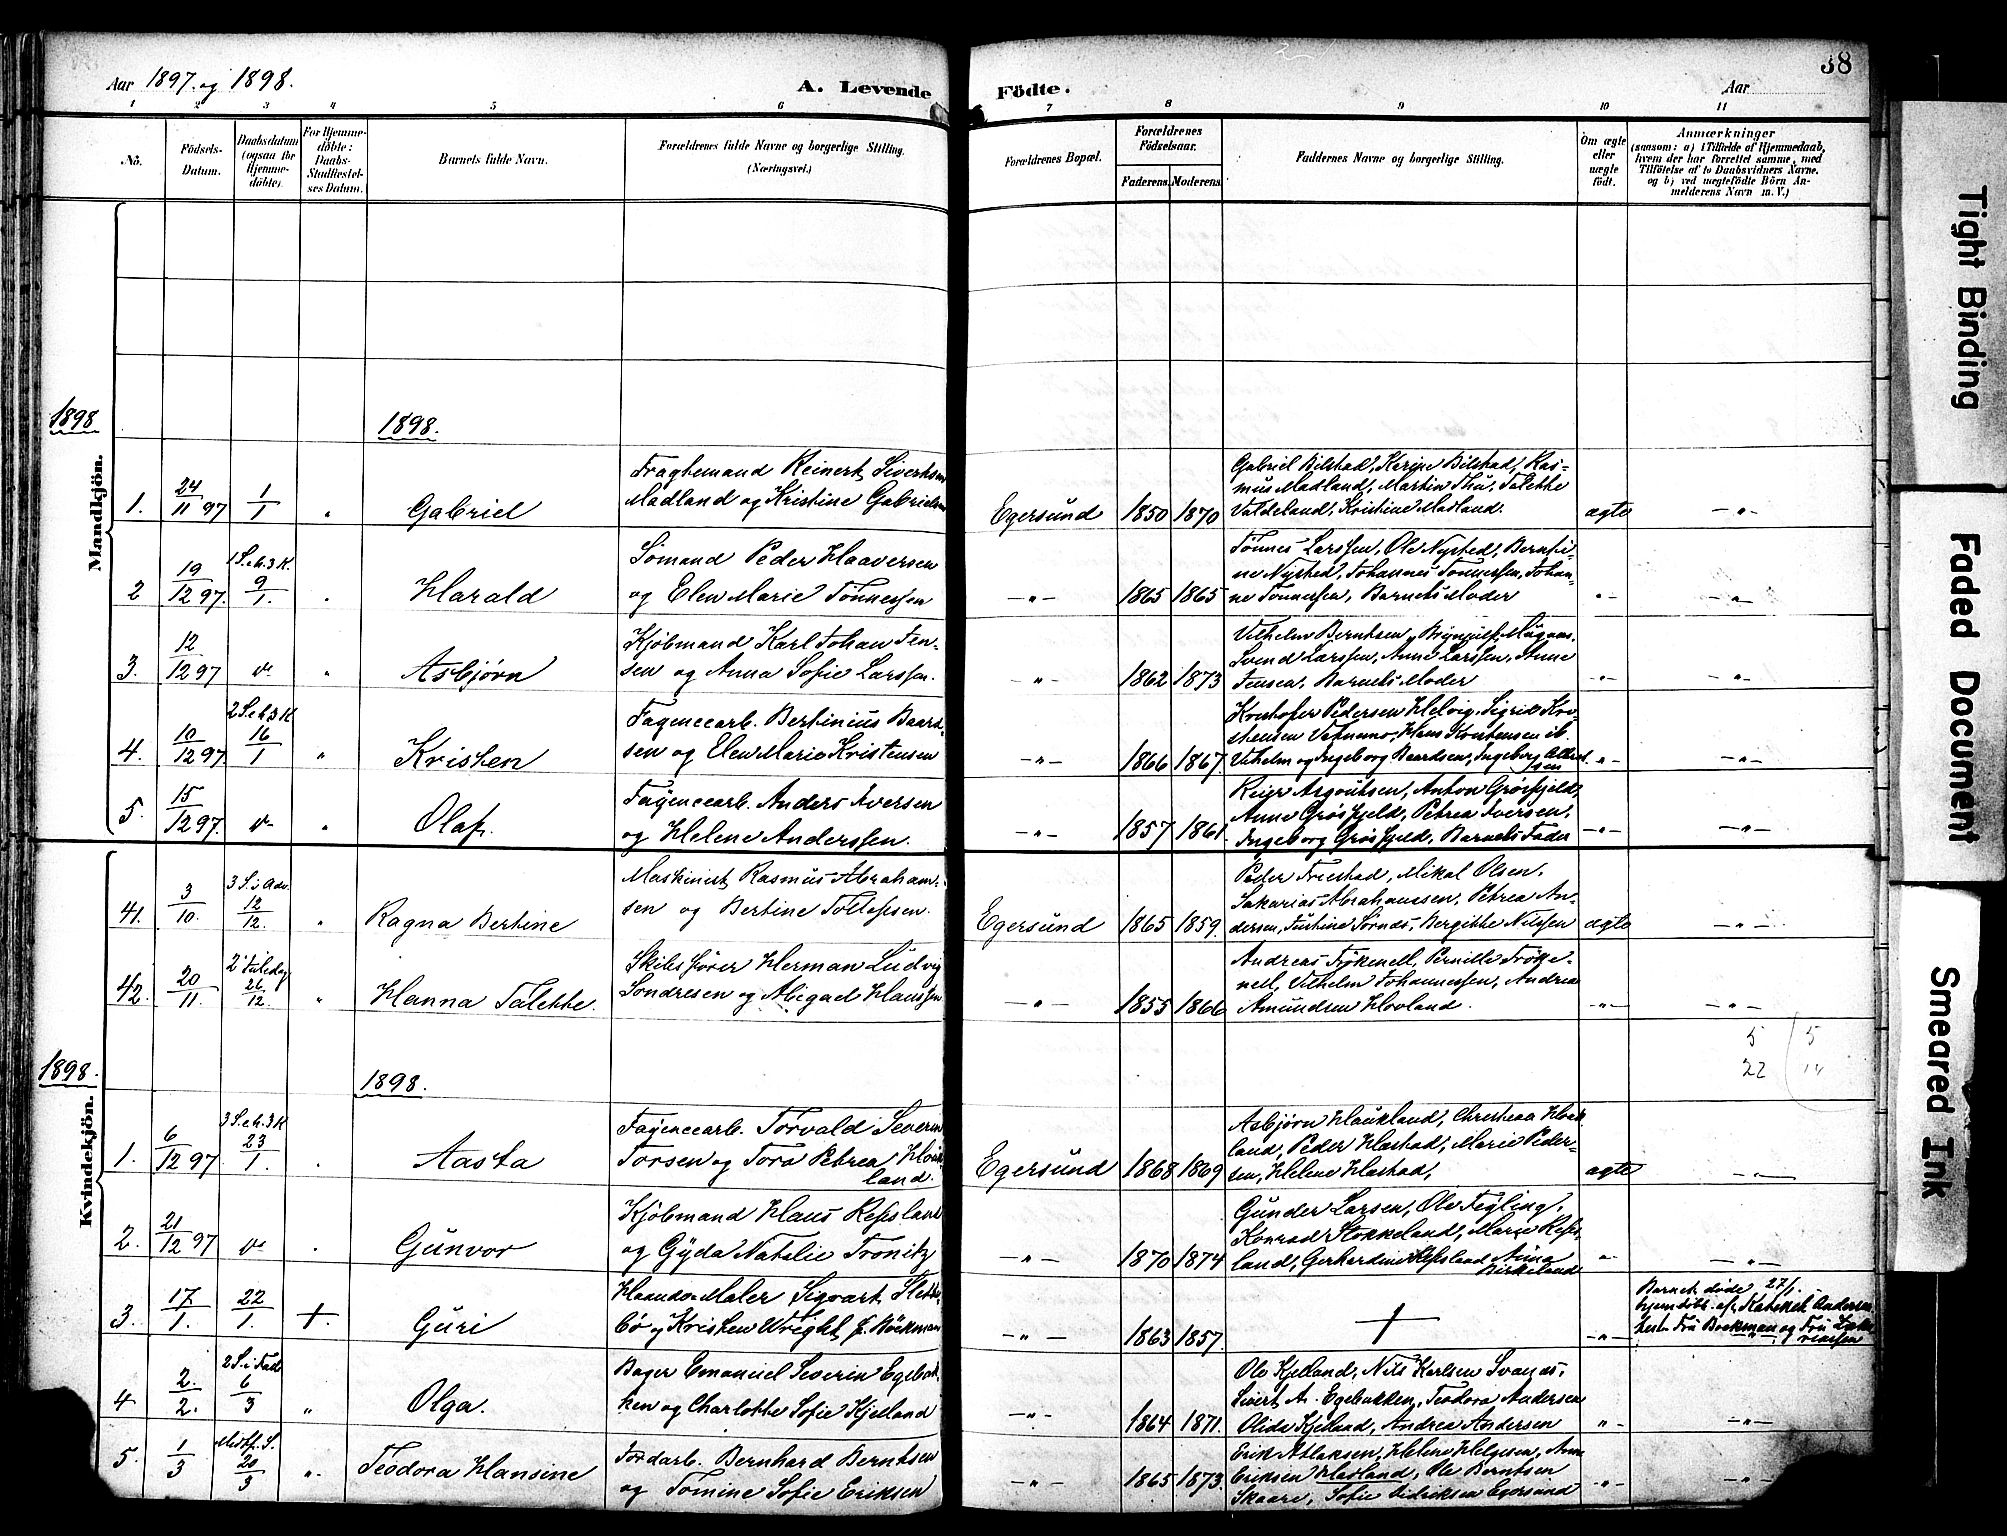 Aar 1897. og 1898.
A. Levende
Födte.
Aar
38
1 2 3 4 5 6 7 8 9 10 11
No.
Födsels-Datum.
Daabsdatum (ogsaa for Hjemme-döbte).
For Hjemme-döbte: Daabs-Stadfæstel-ses Datum.
Barnets fulde Navn.
Forældrenes fulde Navne og borgerlige Stilling. (Næringsvei.)
Forældrenes Bopæl.
Forældrenes Födselsaar.
Faderens. Moderens.
Faddernes Navne og borgerlige Stilling.
Om ægte eller uægte födt.
Anmærkninger
(saasom: a) i Tilfælde af Hjemmedaab, hvem der har forrettet samme, med Tilföielse af to Daabsvidners Navne. og b) ved uægtefödte Börn An-melderens Navn m. V.)
1898
Mandkjön.
1898.
1. 24/11 97 1/1 " Gabriel
Fragtemand Reinert Sivertsen
Madland og Kristine Gabrielsen
Egersund 1850 1870
Gabriel Bilstad, Karine Bilstad, Ras-
mus Madland, Martin Thu, Talette
Valdeland, Kristine Madland.
ægte — " —
2 19/12 97. 1 S. e. h. 3 K. 9/1. " Harald
Sömand Peder Haaversen
og Elen Marie Tönnessen
— " — 1865 1865
Tönnes Larssen, Ole Nysted, Bernti-
ne Nysted, Johannes Tönnessen, Johan-
ne Tönnessen, Barnets Moder
" — — " —
3. 12/12 97 " Asbjørn
Kjöbmand Karl Johan Jen-
sen og Anna Sofie Larssen.
— " — 1862 1873
Vilhelm Berntsen,
Svend Larssen, Anne Larssen, Anne
Jensen, Barnets Moder
— " — — " —
4. 10/12 97 2 S. e. h. 3 K 16/1 " Kristen
Fayencearb. Bertinius Baard-
sen og Elen Marie Kristensen
— " — 1866 1867.
Pedersen Helvig, Sigrid Kri-
stensen Hans Kristensen ib.
Vilhelm og Ingeborg Baardsen, Ingeborg
— " — — " —
5. 15/12 97. " Olaf.
Fayencearb. Anders Iversen
og Helene Anderssen.
— " — 1857 1861.
Reier Asgoutsen, Anton Grösfjeld,
Anne Grösfjeld, Petrea Iversen,
Ingeborg Grösfjeld, Barnets Fader
— " — — " —
41. 3/10. 3 S. i Adv. 12/12. " Ragna Bertine
Maskinist Rasmus Abraham-
sen og Bertine Tollefsen.
Egersund 1865 1859.
Peder Friestad, Mikal Olsen,
Sakarias Abrahamsen, Petrea An-
dersen, Justine Sörnds, Bergitte Nilssen
ægte — " —
42. 20/11. 2 Juledag 26/12. " Hanna Talette.
Skibsförer Herman Ludvig
Sondresen og Abigael Hanssen
— " — 1855 1866
Andreas Frökenell, Pernille Fröke-
nell, Vilhelm Johannessen, Andrea
Amundsen Hovland.
— " — — " —
5 5
22
1898.
Kvindekjön.
1898.
1. 6/12 97 3 S. e. h. 3 K 23/1. " Aasta
Fayencearb. Torvald Severin
Torsen og Tora Petrea Hauk-
land.
Egersund 1868 1869
Asbjørn Haukland, Christena Hauk-
land, Peder Hastad, Marie Peder-
sen, Helene Hastad,
ægte — " —
2. 21/12 97 " Gunvor
Kjöbmand Hans Refsland
og Gyda Natalie Tronitz
— " — 1870 1874
Gunder Larsen, Ole Fegling,
Konrad Stokkeland, Marie Refs-
land, Gerhardine Refsland Anna
Birkeland
" — — " —
3. 17/1. 22/1. +. Guri
Haandv. Maler Sigvart Slette-
bö og Kristen Wright f. Böckman
— " — 1863 1857.
+
— " —
Barnet döde 27/1.
hjemdöbt af Kateket Andersen
Fru Boekman og Fru
4 2./2. 2 S. i Faste 6/3 " Olga.
Bager Emanuel Severin Egebak-
ken og Charlotte Sofie Kjelland
— " — 1864 1871.
Ole Kjelland, Nils Karlsen Svanes,
Sivert A. Egebakken, Teodora Andersen
Olida Kjelland, Andrea Andersen
" — — " —
5. 1/3 Midtf. S. 20/3 " Teodora Hansine
Jordarb. Bernhard Berntsen
og Tomine Sofie Eriksen
— " — 1865 1873.
Erik Atlaksen, Helene Helgesen, Anne
Eriksen Havland, Ole Berntsen
Skaare, Sofie Didriksen Egersund
— " — — " —
Tight Binding
Faded Document
Smeared Ink